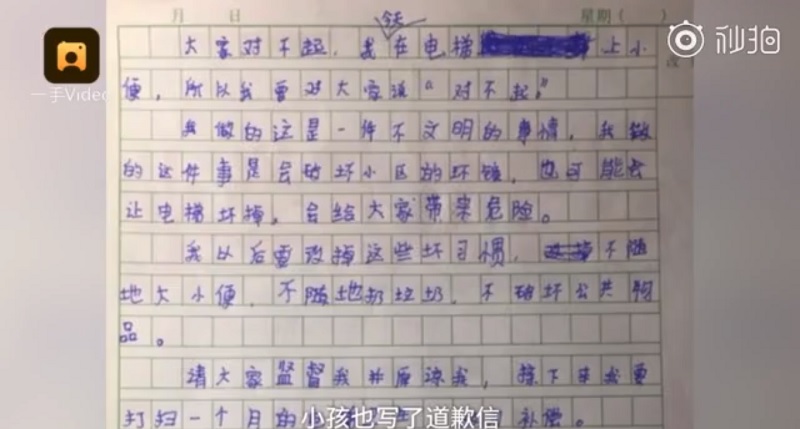 月 日 星期（ ）
今天
大家对不起，我在电梯上小
便，所以我要对大家说“对不起”
我做的这是一件不文明的事情，我做
的这件事是会破坏小区的环镜，也可能会
让电梯坏掉，会给大家带来危险。
我以后要改掉这些坏习惯，不随
地大小便，不随地扔垃圾，不破坏公共物
品。
请大家监督我并原谅我，接下来我要
打扫一个月的 补偿。
小孩也写了道歉信
一手Video
秒拍
改